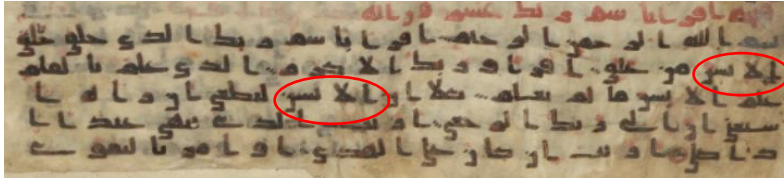 اقرا باسم ربك عشرون
بسم الله الرحمن الرحيم اقرا باسم ربك الذي خلق خلق
الانسن من علق اقرا وربك الاكرم الذي علم بالقلم
علم الانسن ما لم يعلم كلا ان الانسن ليطغى ان راه ا
ستغنى ان الى ربك الرجعى اريت الذي ينهى عبدا ا
ذا صلى اريت ان كان على الهدى او امر بالتقوى